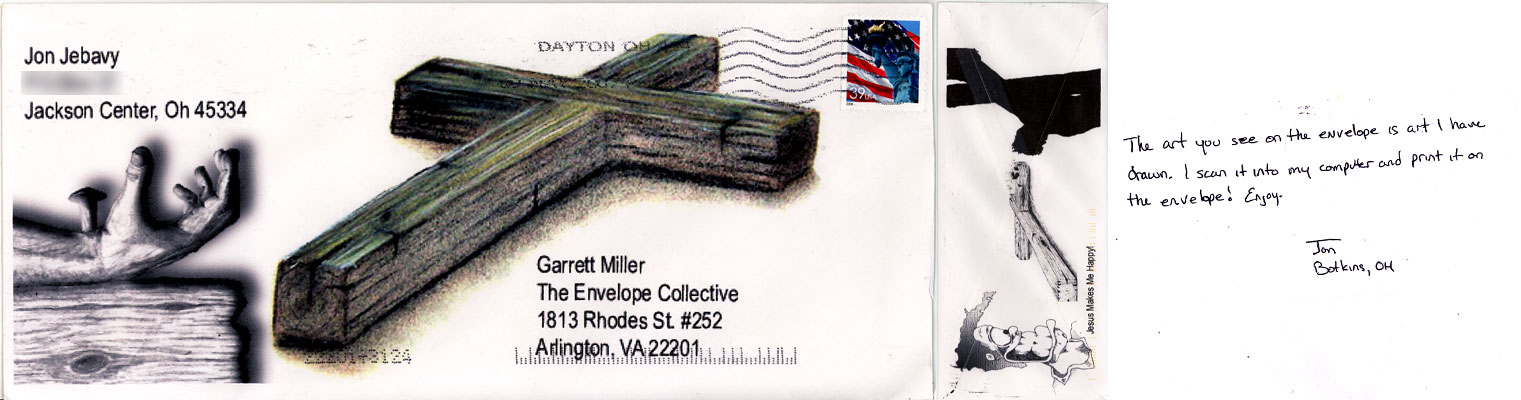 Jon Jebavy
Jackson Center, Oh 45334
DAYTON OH
39 USA
Garrett Miller
The Envelope Collective
1813 Rhodes St. #252
Arlington, VA 22201
Jesus Makes Me Happy!
The art you see on the envelope is art I have
drawn. I scan it into my computer and print it on
the envelope! Enjoy.
Jon
Botkins, OH